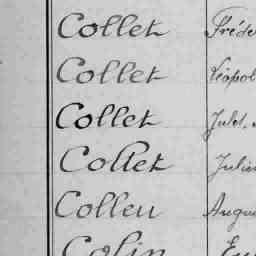 Collet Fréde
Collet Léopol
Collet Jules
Collet Julien
Colleu Augu
Colin Eu